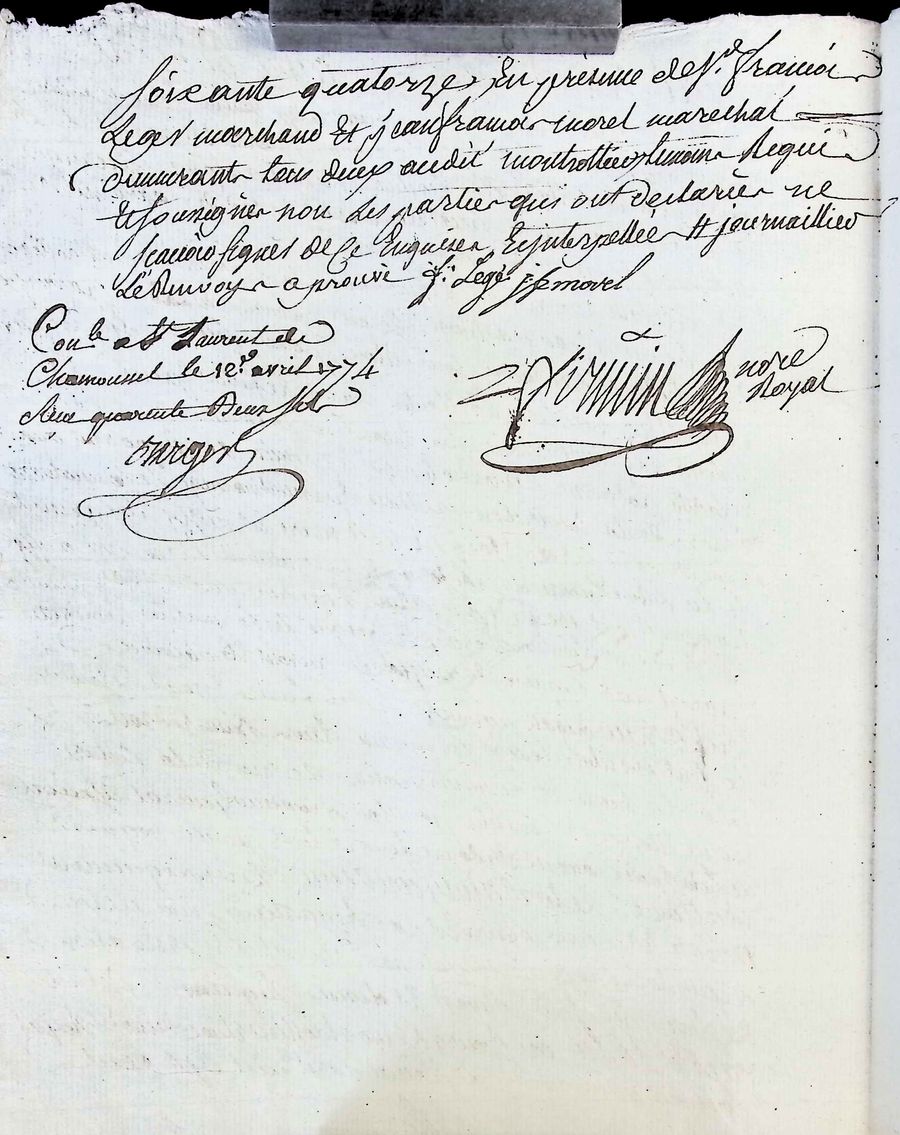 soixante quatorze En présence de Sr. francois
Leger marchand Et jean francois morel marechal
demeurant tous deux audit montrottier temoins Requis
Et soussignes non Les parties qui ont declarées ne
scavoir signer de Ce Enquises Et interpellées # journaillier
Le Renvoy aprouvé f. Legé j f morel
Conle a St Laurent de
Chamousset le 12e. avril 1774
Reçu quarente Deux sols
nore
Royal